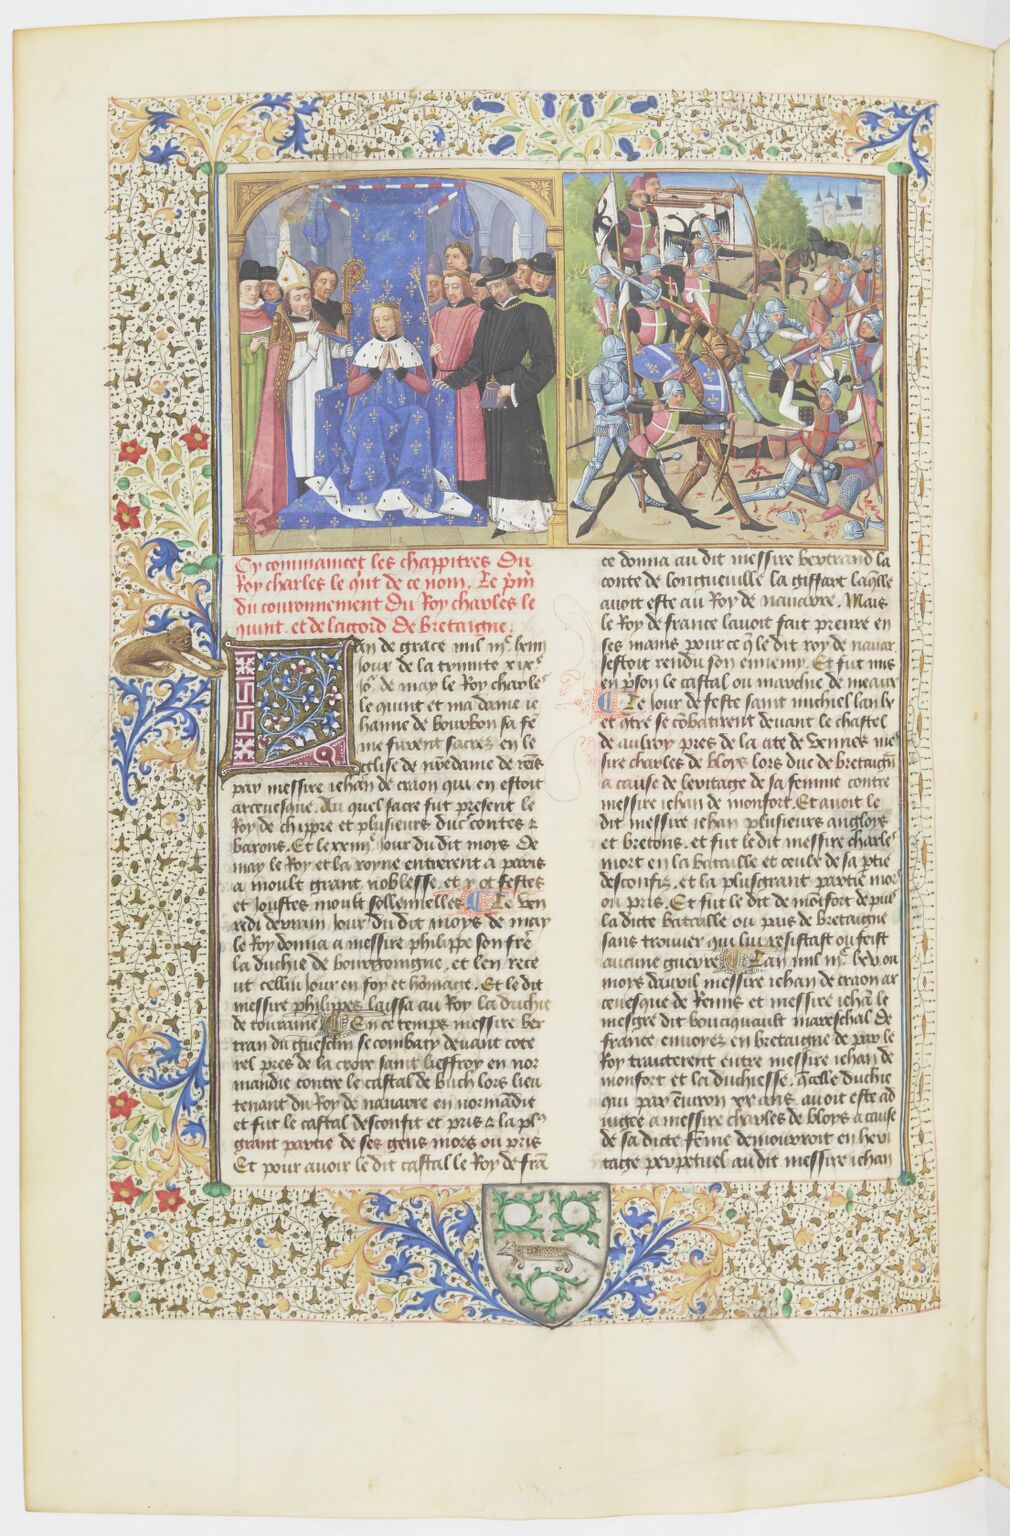 Cy commancet les chappitres Du
Roy charles le qnt de ce nom. Le pm
du couronnement Du Roy charles le
quint. et de laccord De Bretaigne.
Lan de grace mil iiic lxiiii
Jour de la trinite xixe
Jor de may le Roy charles
le quint et ma dame ie
hanne de bourbon sa fe
me furent sacrez en le
glise de nredame de rais
par messire iehan de craon qui en estoit
arcevesque. Au quel sacre fut present le
Roy de chippre et plusieurs ducs contes &
barons. Et le xxiiiie Jour du dit moys De
may le Roy et la royne entrerent a paris
a moult grant noblesse. et y ot festes
et Joustes moult sollennelles. Le ven
redi derrain Jour du dit moys de may
le Roy donna a messire philippe son fre
la duchie de bourgongne. et len rece
ut cellui Jour en foy et homage. Et le dit
messire philippes laissa au Roy la duchie
de touraine. En ce temps messire ber
tran du guesclin se combaty devant cote
rel pres de la croix saint lieffroy en nor
mandie contre le castal de buch lors lieu
tenant du Roy de navarre en normadie
et fut le castal desconfit et pris & la pls
grant partie de ses gens mors ou pris
Et pour avoir le dit castal le Roy de fra
ce donna au dit messire bertrand la
conte de longueville la giffart laqlle
avoit este au Roy de navarre. Mais
le Roy de france lavoit fait prenre en
ses mains pour ce q le dit roy de navar
sestoit rendu son ennemy. Et fut mis
en pson le castal ou marchie de meaux
Le Jour de feste saint michiel lan lxv
et qtre se cobatirent devant le chastel
de aulroy pres de la cite de vennes mes
sire charles de bloys lors duc de bretaign
a cause de leritage de sa femme contre
messire iehan de monfort. Et avoit le
dit messire iehan plusieurs angloys
et bretons. et fut le dit messire charles
mort en la bataille et ceulx de sa ptie
desconfiz. et la plusgrant partie mors
ou pris. Et fut le dit de motfort depuis
la dicte bataille ou pais de bretaigne
sans trouver qui lui resistast ou feist
aucune guerre. Lan mil iiic lxv ou
moys davril messire iehan de craon ar
cevesque de Reims et messire iehan le
mesgre dit bouciquault mareschal de
france envoyez en bretaigne de par le
Roy traicterent entre messire iehan de
monfort et la duchiesse. Qcelle duchie
qui par environ xx ans avoit este ad
iugee a messire charles de bloys a cause
de sa dicte feme demourroit en heri
tage perpetuel au dit messire iehan